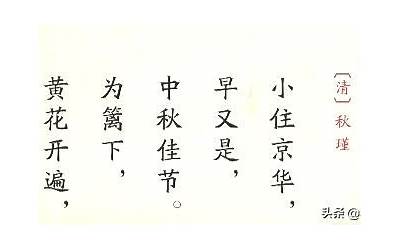 〔清〕秋瑾
小住京华，
早又是，
中秋佳节。
为篱下，
黄花开遍，
头条 @